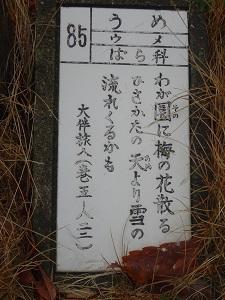 85
うめ
ウメ
ばら科
わが園に梅の花散る
その
ひさかたの天より雪の
あめ
流れくるかも
大伴旅人(巻五・八二二)